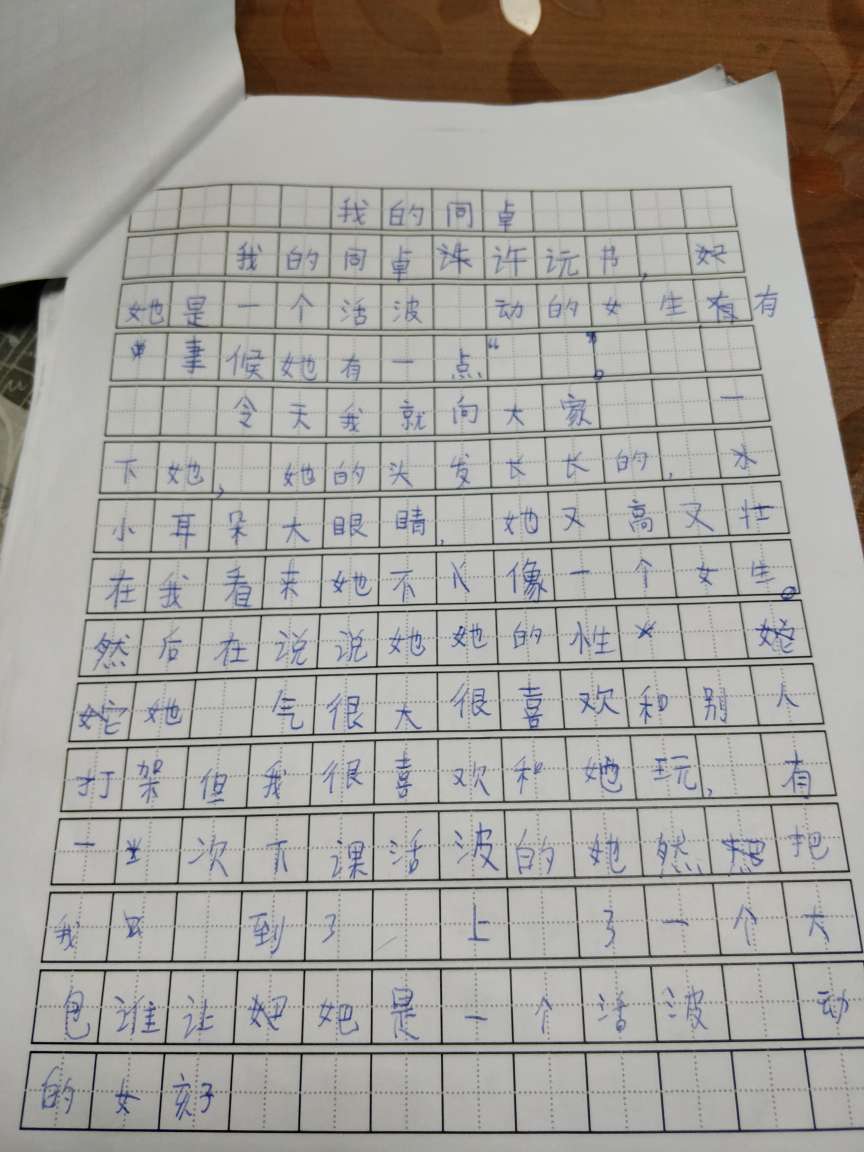 我的同卓
我的同卓许许玩书，
她是一个活波 动的女生有有
事候她有一点“ ”。
令天我就向大家 一
下她，她的头发长长的，水
小耳朵大眼睛，她又高又壮
在我看来她不像一个女生。
然后在说说她她的性
她 气很大很喜欢和别人
打架但我很喜欢和她玩，有
一次下课活波的她然想把
我 到了 上 了一个大
包谁让她她是一个活波 动
的女孩子